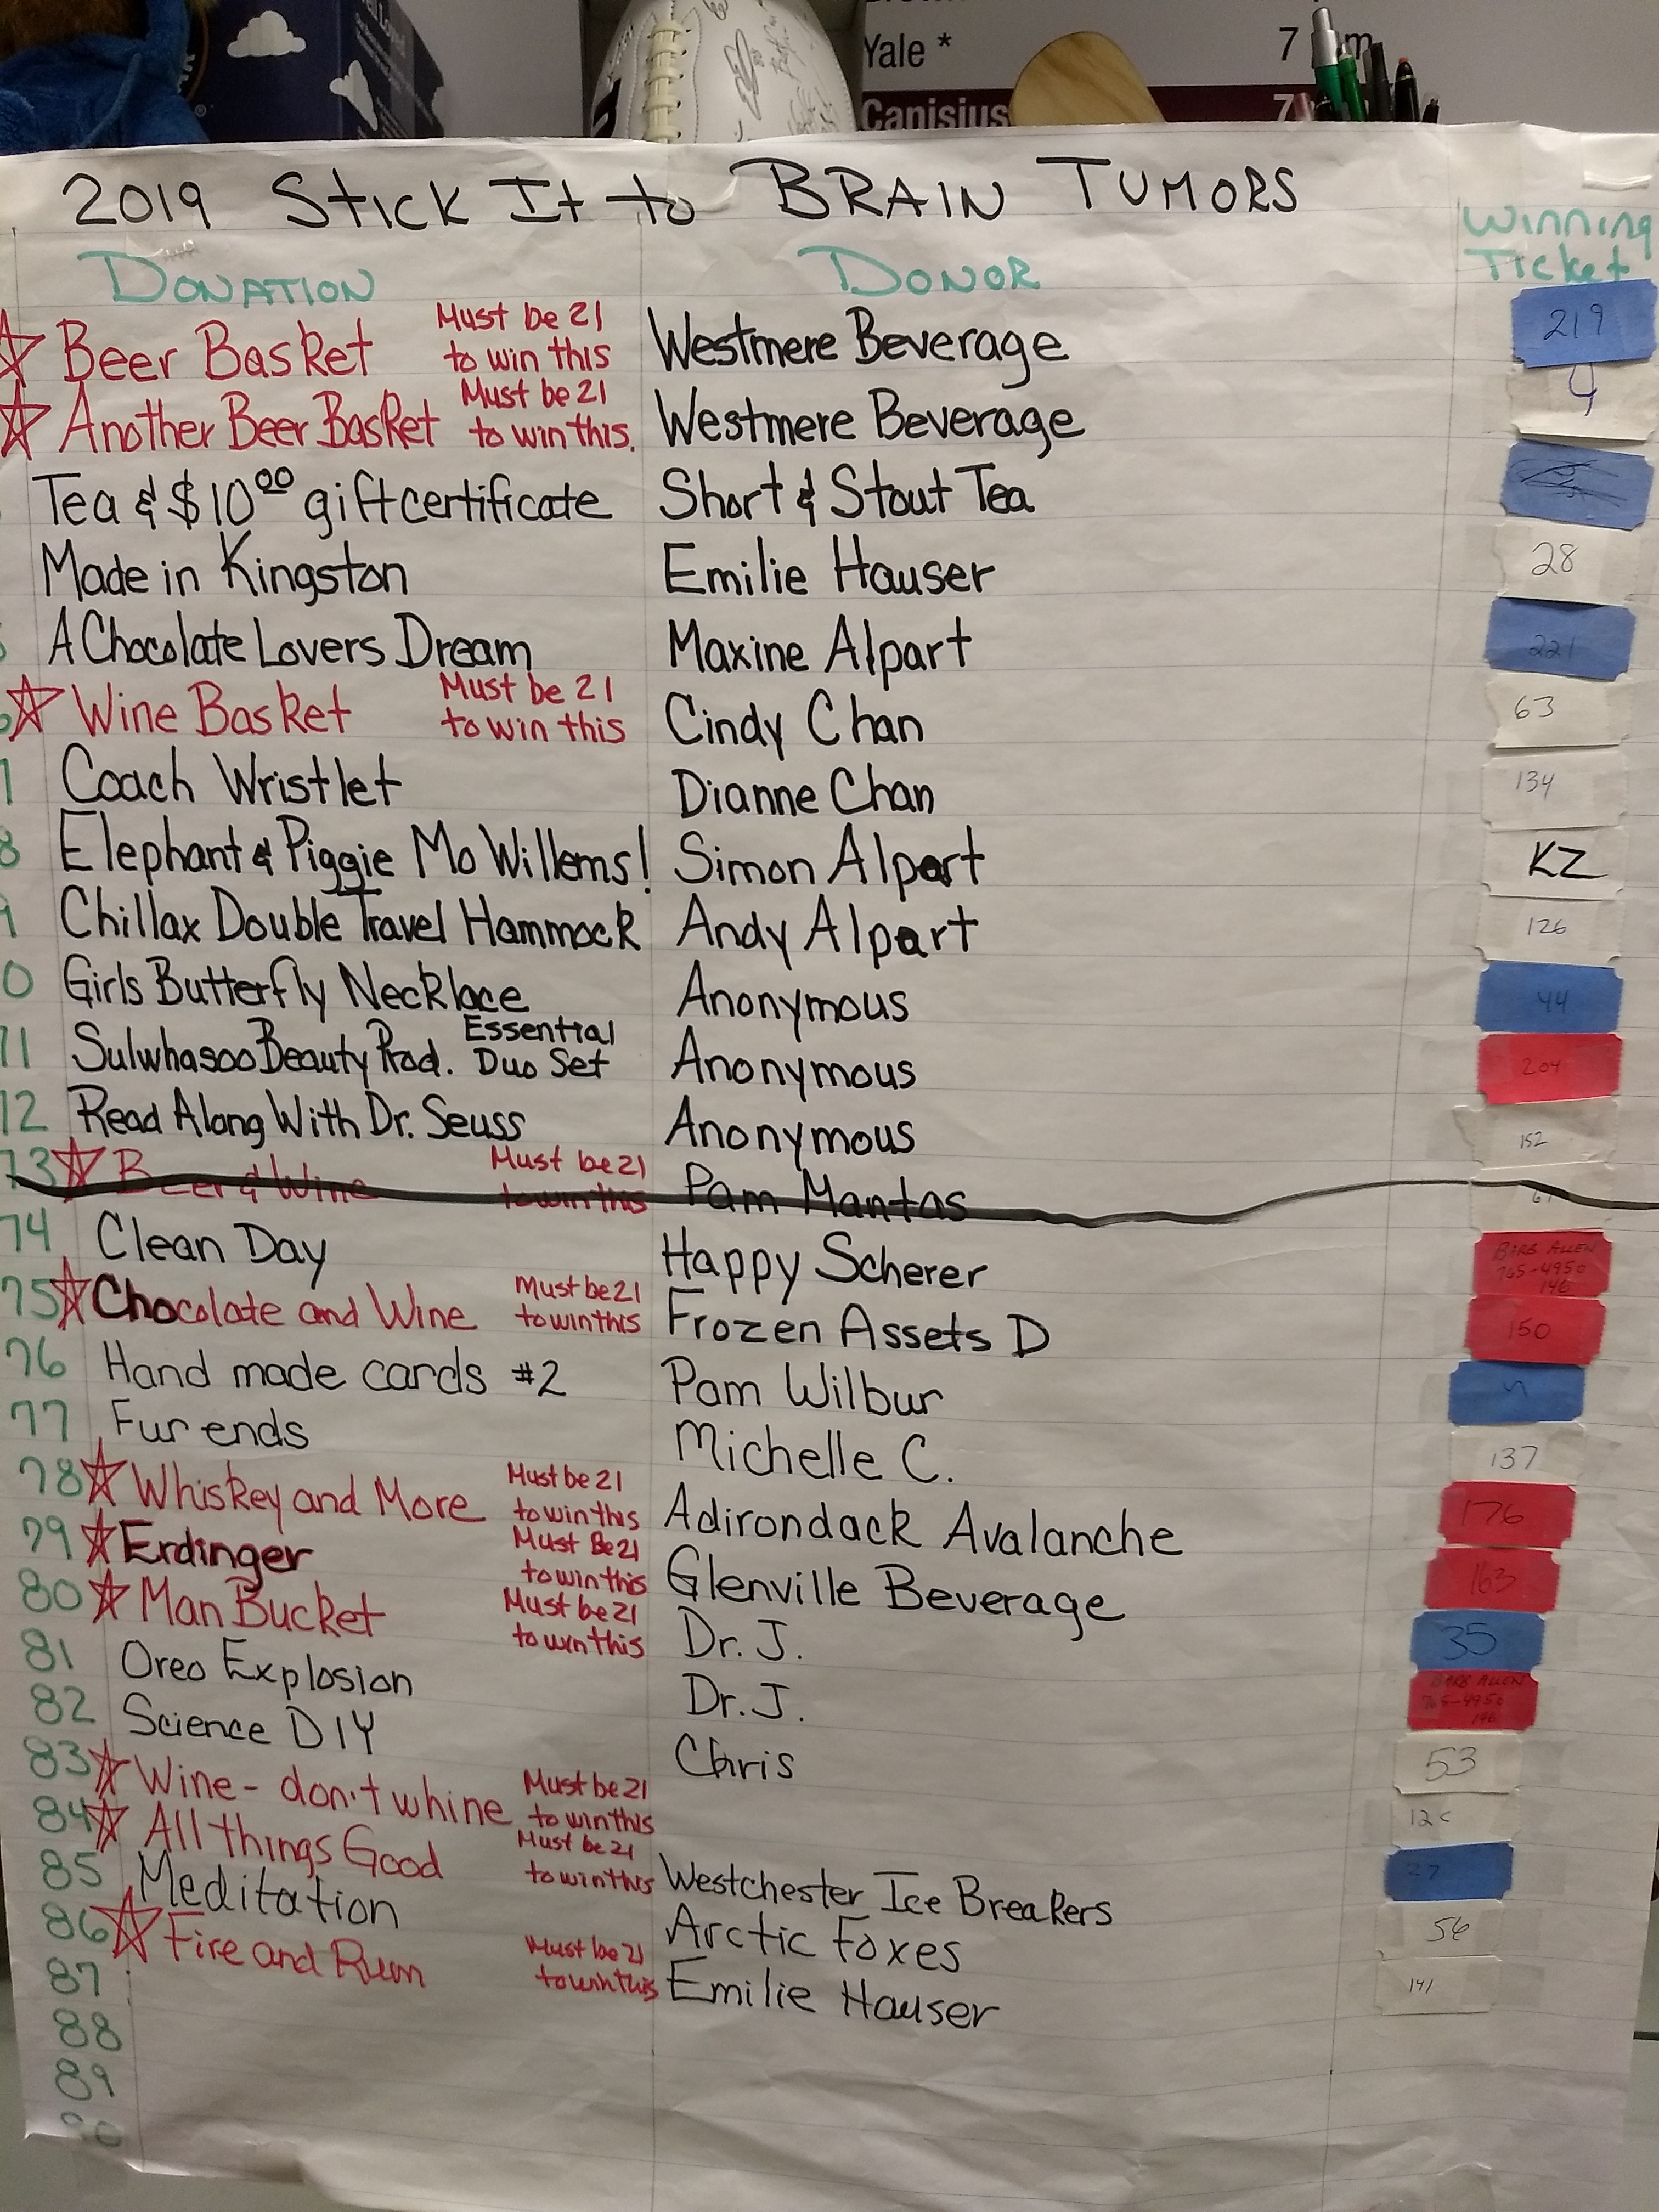 Yale * 7
Canisius 7
2019 Stick It to BRAIN TUMORS
DONATION DONOR Winning Ticket
Beer Basket Must be 21 to win this Westmere Beverage 219
Another Beer Basket Must be 21 to win this. Westmere Beverage 4
Tea & $10.00 gift certificate Short & Stout Tea
Made in Kingston Emilie Hauser 28
A Chocolate Lovers Dream Maxine Alpart 221
Wine Basket Must be 21 to win this Cindy Chan 63
Coach Wristlet Dianne Chan 134
8 Elephant & Piggie Mo Willems! Simon Alpart KZ
9 Chillax Double Travel Hammock Andy Alpart 126
0 Girls Butterfly Necklace Anonymous 44
71 Sulwhasoo Beauty Prod. Essential Duo Set Anonymous 204
72 Read Along With Dr. Seuss Anonymous 152
73 Beer & Wine Must be 21 to win this Pam Mantas 61
74 Clean Day Happy Scherer BARB ALLEN 765-4950 146
75 Chocolate and Wine Must be 21 to win this Frozen Assets D 150
76 Hand made cards #2 Pam Wilbur
77 Fur ends Michelle C. 137
78 Whiskey and More Must be 21 to win this Adirondack Avalanche 176
79 Erdinger Must Be 21 to win this Glenville Beverage 163
80 Man Bucket Must be 21 to win this Dr. J. 35
81 Oreo Explosion Dr. J. BARB ALLEN 765-4950 146
82 Science DIY Chris 53
83 Wine - don't whine Must be 21 to win this
84 All things Good Must be 21 to win this Westchester Ice Breakers 27
85 Meditation Arctic Foxes 56
86 Fire and Rum Must be 21 to win this Emilie Hauser 141
87
88
89
90